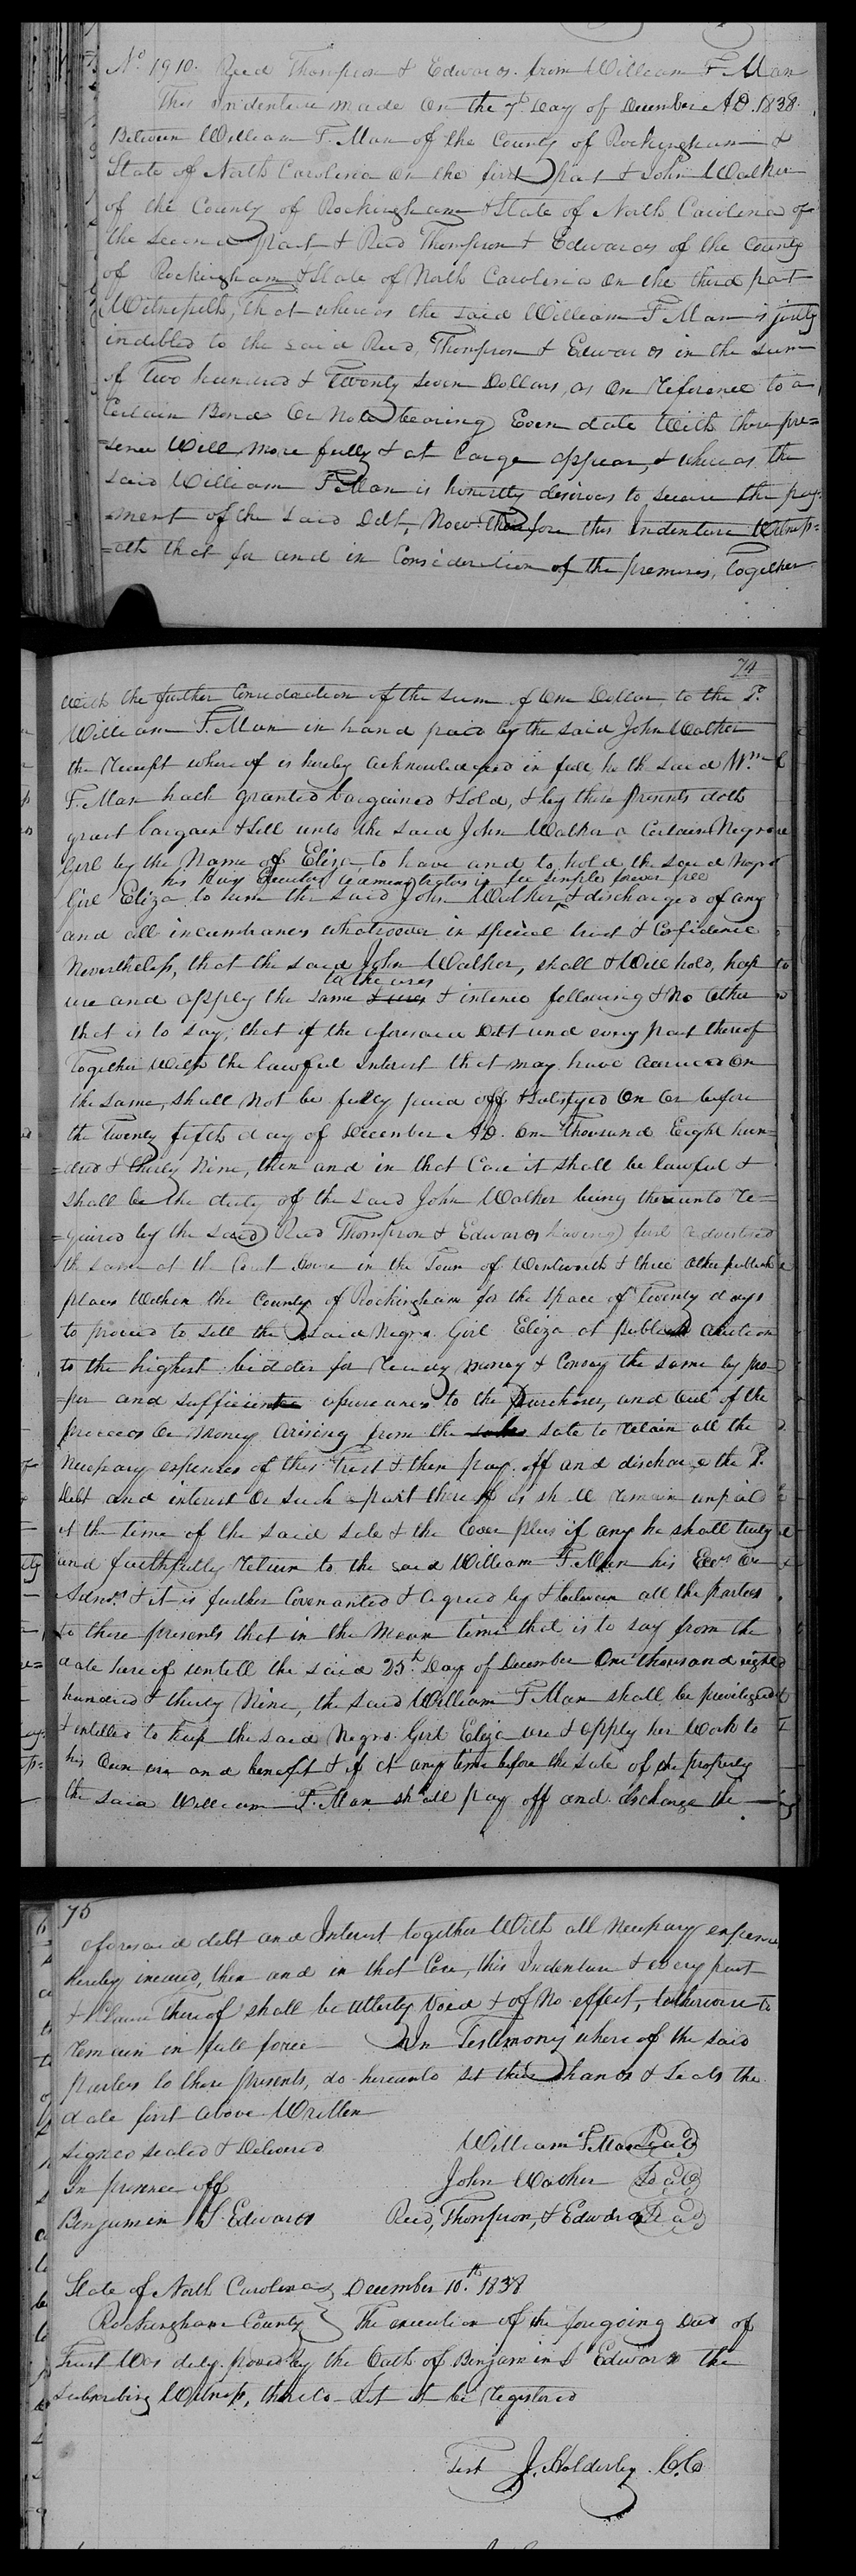 No. 1910. Reed Thompson & Edwards. from William F. Man
This indenture made on the 7th Day of December A.D. 1838.
Between William F. Man of the County of Rockingham &
State of North Carolina on the first part & John Walker
of the County of Rockingham & State of North Carolina of
the second part & Reed Thompson & Edwards of the County
of Rockingham & State of North Carolina on the third part
Witnesseth, that whereas the said William F. Man is justly
indebted to the said Reed, Thompson & Edwards in the sum
of Two hundred & Twenty seven Dollars, as on reference to a
Certain Bond or Note bearing Even date with these pre=
=sence Will more fully & at large appear, & whereas the
said William F Man is honestly desirous to secure the pay=
=ment of the said Debt, Now therefore this Indenture Witness=
=eth that for and in Consideration of the premises, Together
74
With the further Consideration of the sum of One Dollar, to the Sd.
William F. Man in hand paid by the said John Walker
the Receipt where of is hereby acknowledged in full he th said Wm
F. Man hath granted bargained & Sold, & by these Presents doth
grant bargain & Sell unto the said John Walker a Certain Negro
Girl by the Name of Eliza to have and to hold the said Negro
his heirs Executors & administrators in fee simple forever free
Girl Eliza to him the said John Walker, & discharged of any
and all incumbrances whatsoever in special trust & Confidence
Nevertheless, that the said John Walker, shall & Will hold, keep
to the uses
use and apply the same & uses & intence following & No other
that is to say; that if the aforesaid Debt and every part thereof
Together With the lawful Interest that may have accrued on
the same, shall not be fully paid off & Satisfyed On Or before
the Twenty fifth day of December A.D. One Thousand Eight hun=
=dred & thirty Nine, then and in that Case it shall be lawful &
shall be the duty of the said John Walker being thereunto re=
=quired by the said Reed Thompson & Edwards having first advertised
the same at the Court House in the Town of Wentworth & three other publick
places Within the County of Rockingham for the space of Twenty days
to proceed to sell the said Negro Girl Eliza at publick auction
to the highest bidder for ready money & Convey the same by pro=
=per and sufficient assurances to the Purchaser, and out of the
proceeds or money arising from the sale to retain all the
Necessary expenses of this Trust & then pay off and discharge the Sd.
Debt and interest or such a part there of as shall remain unpaid
at the time of the said sale & the over plus if any he shall truly
and faithfully return to the said William F Man his Exrs or
Admrs & it is further Covenanted & agreed by & between all the parties
to these presents that in the mean time that is to say from the
date here of untill the said 25th. Day of December One thousand eight
hundred & thirty Nine, the said William F Man shall be priviledged
& intitled to keep the said Negro Girl Eliza use & apply her Work to
his Own use and benefit & if at any time before the sale of the property
the said William F. Man shall pay off and discharge the
75
aforesaid debt and Interest together With all Necessary expense
hereby incured, then and in that Case, this Indenture & every part
& Clause thereof shall be utterly Void & of No effect, & otherwise to
remain in full force In Testimony where of the said
parties to these presents, do hereunto set their hands & Seals the
date first above Written
Signed sealed & Delivered William F Man Seal
In presence off John Walker Seal
Benjamin S. Edwards Reed, Thompson, & Edwards Seal
State of North Carolina December 10th. 1838
Rockingham County The execution of the foregoing Deed of
Trust Was duly proved by the Oath of Benjamin S Edwards the
Subscribing Witness, thereto Let it be registered
Test J. Holderby C.C